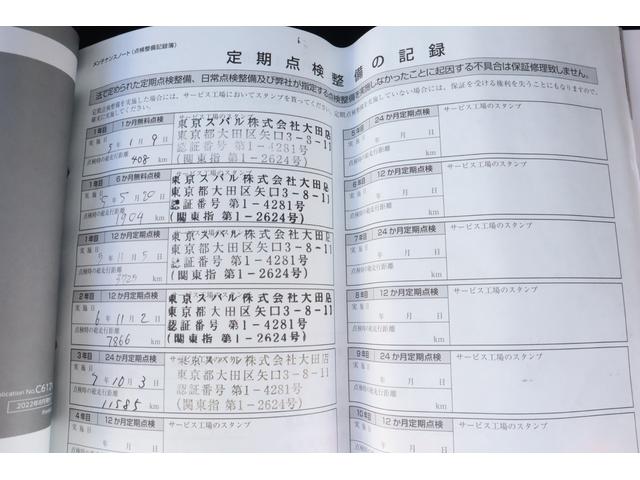 メンテナンスノート(点検整備記録簿)
定期点検整備の記録
法で定められた定期点検整備、日常点検整備及び弊社が指定する点検整備を実施しなかったことに起因する不具合は保証修理致しません。
定期点検整備を実施した場合には、サービス工場においてスタンプを貰ってください。定期点検整備を実施していない場合には、保証を受ける権利を失うことにもなりますので、
確実に実施してください。
1年目 1か月無料点検 サービス工場のスタンプ
実施日
5年 1月 9日
点検時の総走行距離
408 km
東京スバル株式会社大田店
東京都大田区矢口3-8-11
認証番号 第1-4281号
(関東指 第1-2624号)
1年目 6か月無料点検 サービス工場のスタンプ
実施日
5年 5月 20日
点検時の総走行距離
1904 km
東京スバル株式会社大田店
東京都大田区矢口3-8-11
認証番号 第1-4281号
(関東指 第1-2624号)
1年目 12か月定期点検 サービス工場のスタンプ
実施日
5年 11月 5日
点検時の総走行距離
3725 km
東京スバル株式会社大田店
東京都大田区矢口3-8-11
認証番号 第1-4281号
(関東指 第1-2624号)
2年目 12か月定期点検 サービス工場のスタンプ
実施日
6年 11月 2日
点検時の総走行距離
7866 km
東京スバル株式会社大田店
東京都大田区矢口3-8-11
認証番号 第1-4281号
(関東指 第1-2624号)
3年目 24か月定期点検 サービス工場のスタンプ
実施日
7年 10月 3日
点検時の総走行距離
11585 km
東京スバル株式会社大田店
東京都大田区矢口3-8-11
認証番号 第1-4281号
(関東指 第1-2624号)
4年目 12か月定期点検 サービス工場のスタンプ
実施日
5年目 24か月定期点検 サービス工場のスタンプ
実施日
年 月 日
点検時の総走行距離
km
6年目 12か月定期点検 サービス工場のスタンプ
実施日
年 月 日
点検時の総走行距離
km
7年目 24か月定期点検 サービス工場のスタンプ
実施日
年 月 日
点検時の総走行距離
km
8年目 12か月定期点検 サービス工場のスタンプ
実施日
年 月 日
点検時の総走行距離
km
9年目 24か月定期点検 サービス工場のスタンプ
実施日
年 月 日
点検時の総走行距離
km
10年目 12か月定期点検 サービス工場のスタンプ
実施日
年 月 日